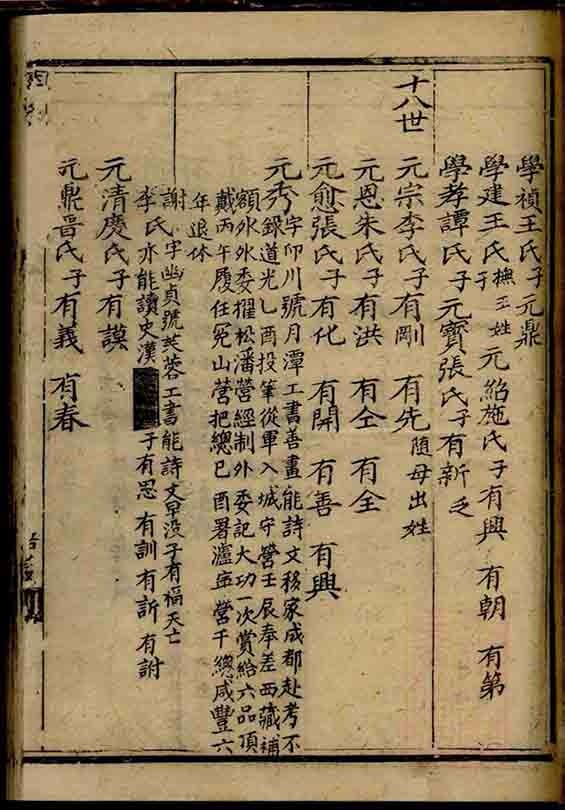 學禎王氏子元鼎
學建王氏子撫王姓元紹施氏子有興 有朝 有第
學孝譚氏子元寶張氏子有新乏
十八世
元宗李氏子有剛 有先隨母出姓
元恩朱氏子有洪 有仝 有全
元愈張氏子有化 有開 有善 有興
元秀字印川號月潭工書善畫能詩文移家成都赴考不
錄道光乙酉投筆從軍入城守營壬辰奉差西藏補
額外外委擢松潘營經制外委記大功一次賞給六品頂
戴丙午履任冕山營把總已酉署瀘寧營千總咸豐六
年退休
謝氏字幽貞號芙蓉工書能詩文早没子有福夭亡
李氏亦能讀史漢子有思 有訓 有訢 有詂
元清慶氏子有謨
元鼎晋氏子有義 有春